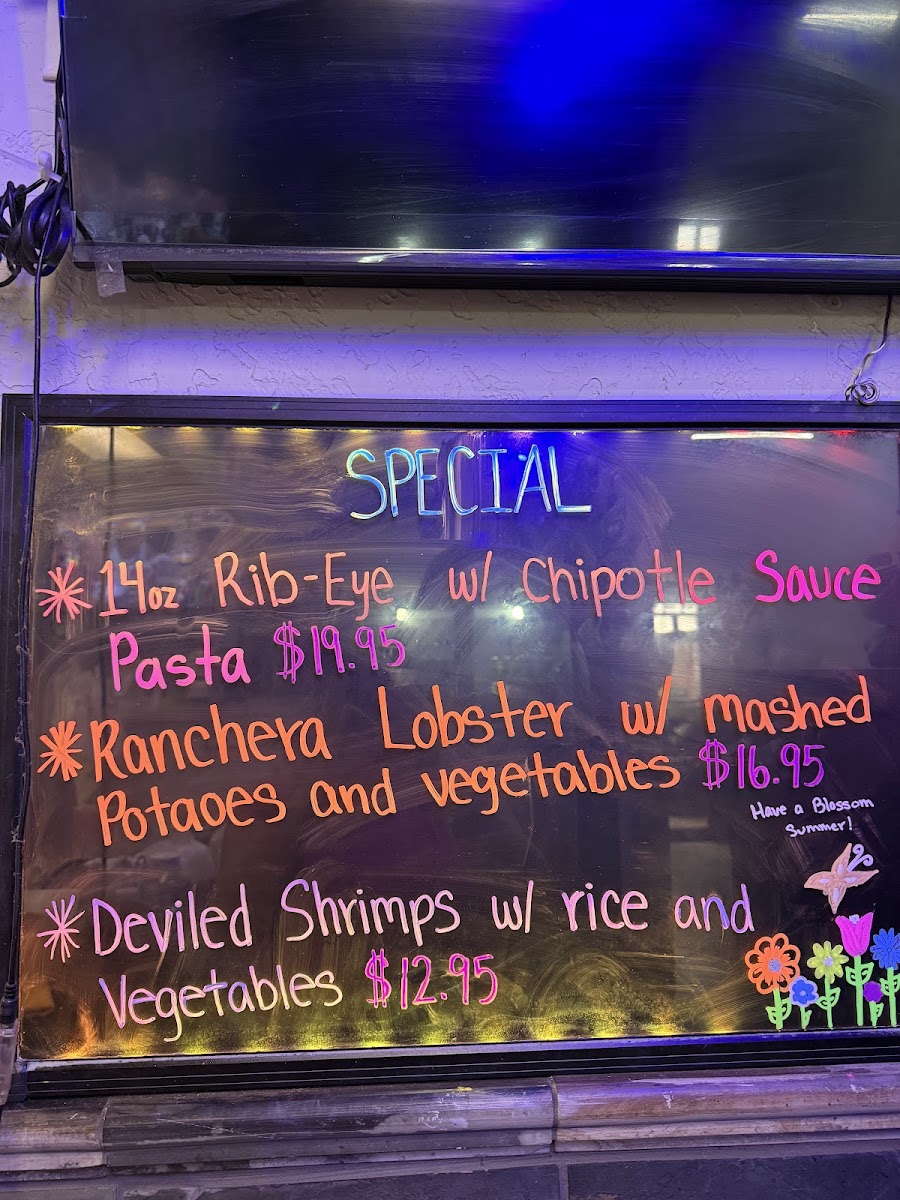 SPECIAL
* 14oz Rib-Eye w/ Chipotle Sauce
Pasta $19.95
* Ranchera Lobster w/ mashed
Potaoes and vegetables $16.95
Have a Blossom
Summer!
* Deviled Shrimps w/ rice and
Vegetables $12.95